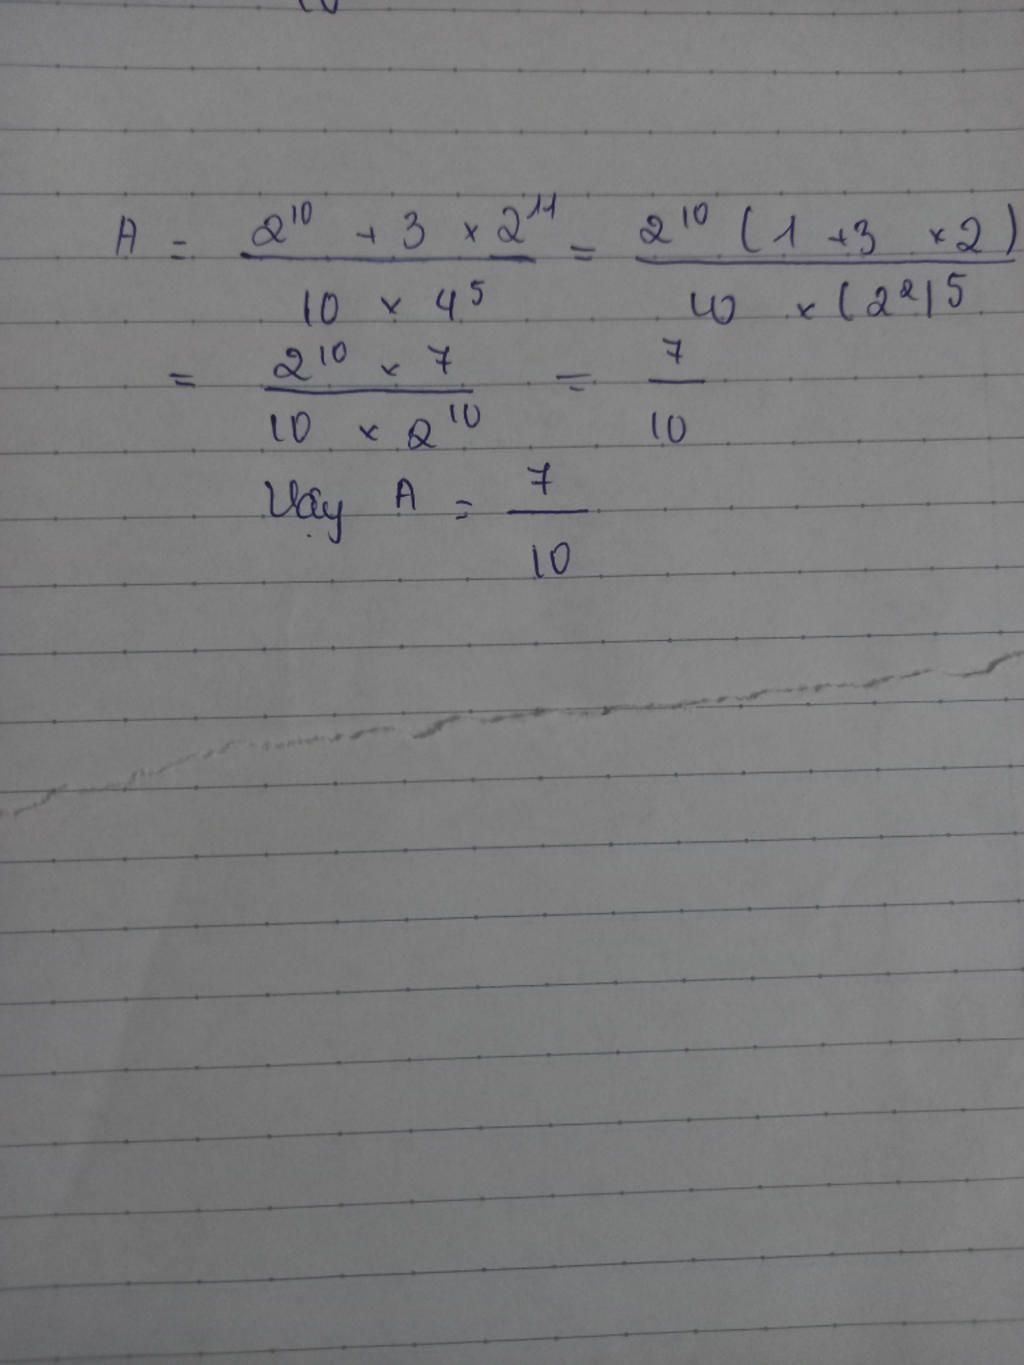 A = (2¹⁰ + 3 × 2¹¹)/(10 × 4⁵) = (2¹⁰ (1 + 3 × 2))/(10 × (2²)⁵)
= (2¹⁰ × 7)/(10 × 2¹⁰) = 7/10
Vậy A = 7/10